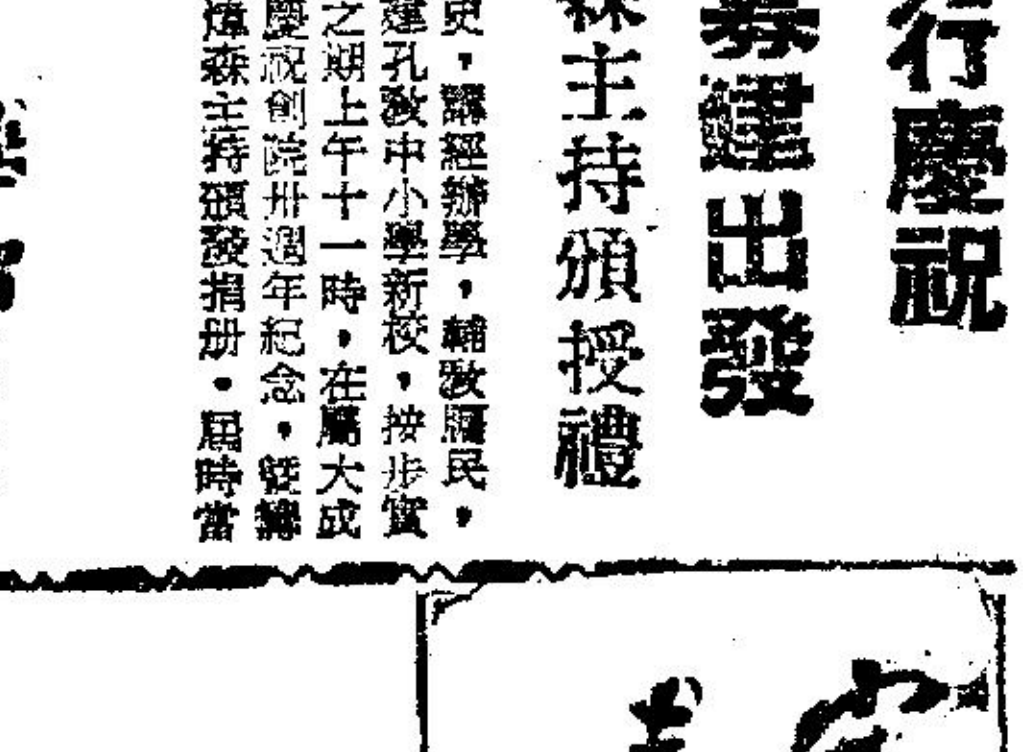 行慶祝
募建出發
森主持頒授禮
史，講經辦學，輔敎牖民，
建孔敎中小學新校，按步實
之期上午十一時，在屬大成
慶祝創院卅週年紀念，暨
煒森主持頒發捐册。屆時當